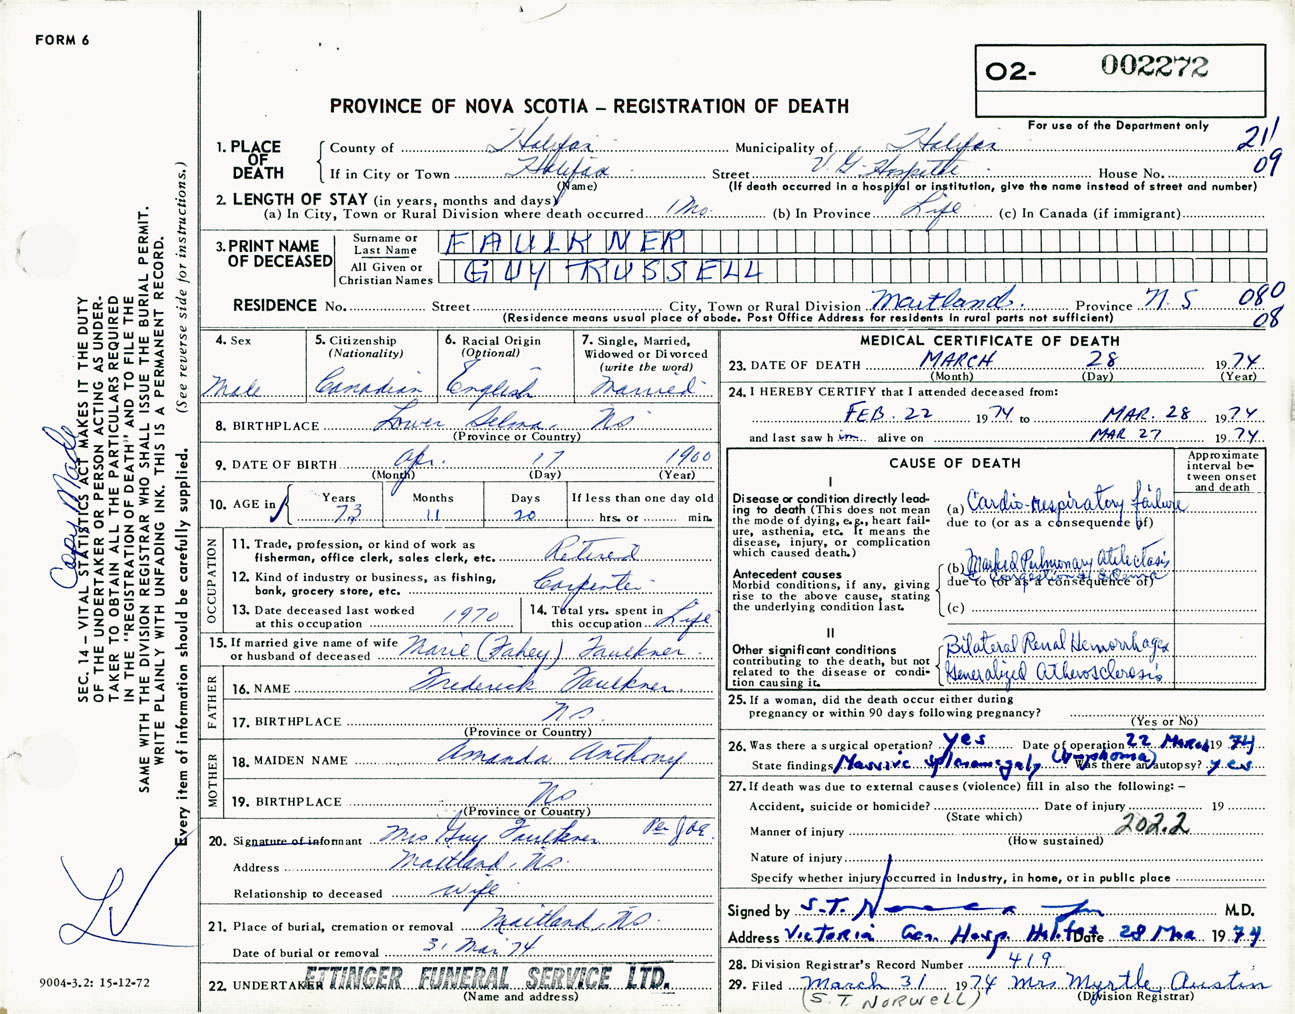 FORM 6
02- 002272
PROVINCE OF NOVA SCOTIA – REGISTRATION OF DEATH
For use of the Department only
211
09
1. PLACE OF DEATH
County of Halifax Municipality of Halifax
If in City or Town Halifax Street V G Hospital House No.
(Name) (If death occurred in a hospital or institution, give the name instead of street and number)
2. LENGTH OF STAY (in years, months and days)
(a) In City, Town or Rural Division where death occurred 1 Mo. (b) In Province Life (c) In Canada (if immigrant)
3. PRINT NAME OF DECEASED
Surname or Last Name FAULKNER
All Given or Christian Names GUY RUSSELL
RESIDENCE No. Street City, Town or Rural Division Maitland. Province N.S 080
08
(Residence means usual place of abode. Post Office Address for residents in rural parts not sufficient)
4. Sex
Male
5. Citizenship
(Nationality)
Canadian
6. Racial Origin
(Optional)
English
7. Single, Married, Widowed or Divorced
(write the word)
Married
8. BIRTHPLACE Lower Selma, NS
(Province or Country)
9. DATE OF BIRTH Apr. 17 1900
(Month) (Day) (Year)
10. AGE in Years Months Days If less than one day old
73 11 20 hrs. or min.
OCCUPATION
11. Trade, profession, or kind of work as fisherman, office clerk, sales clerk, etc. Retired
12. Kind of industry or business, as fishing, bank, grocery store, etc. Carpenter
13. Date deceased last worked at this occupation 1970
14. Total yrs. spent in this occupation Life
15. If married give name of wife or husband of deceased Marie (Fahey) Faulkner.
FATHER
16. NAME Frederick Faulkner.
17. BIRTHPLACE NS
(Province or Country)
MOTHER
18. MAIDEN NAME Amanda Anthony
19. BIRTHPLACE NS
(Province or Country)
20. Signature of informant Mrs. Guy Faulkner Per
Address Maitland, NS.
Relationship to deceased wife
21. Place of burial, cremation or removal Maitland, NS.
Date of burial or removal 31 Mar 74
22. UNDERTAKER ETTINGER FUNERAL SERVICE LTD.
(Name and address)
MEDICAL CERTIFICATE OF DEATH
23. DATE OF DEATH MARCH 28 1974
(Month) (Day) (Year)
24. I HEREBY CERTIFY that I attended deceased from:
FEB. 22 1974 to MAR. 28 1974
and last saw him alive on MAR 27 1974
CAUSE OF DEATH
Approximate interval between onset and death
I
Disease or condition directly leading to death (This does not mean the mode of dying, e.g., heart failure, asthenia, etc. It means the disease, injury, or complication which caused death.)
(a) Cardio-Respiratory failure
due to (or as a consequence of)
Antecedent causes
Morbid conditions, if any, giving rise to the above cause, stating the underlying condition last.
(b) Marked Pulmonary Atelectasis
Congestion & Edema
due to (or as a consequence of)
(c)
II
Other significant conditions
contributing to the death, but not related to the disease or condition causing it.
Bilateral Renal Hemorrhages
Generalized Atherosclerosis
25. If a woman, did the death occur either during pregnancy or within 90 days following pregnancy?
(Yes or No)
26. Was there a surgical operation? yes Date of operation 22 March 1974
State findings Massive splenomegaly (lymphoma) Was there an autopsy? yes
27. If death was due to external causes (violence) fill in also the following: –
Accident, suicide or homicide? Date of injury 19
(State which)
Manner of injury 202.2
(How sustained)
Nature of injury
Specify whether injury occurred in Industry, in home, or in public place
Signed by S.T. M.D.
Address Victoria Gen. Hosp. Halifax Date 28 Mar 1974
28. Division Registrar's Record Number 419
29. Filed March 31 1974 Mrs Myrtle Austin
(S.T. NORWELL) (Division Registrar)
SEC. 14 – VITAL STATISTICS ACT MAKES IT THE DUTY
OF THE UNDERTAKER OR PERSON ACTING AS UNDERTAKER TO OBTAIN ALL THE PARTICULARS REQUIRED
IN THE "REGISTRATION OF DEATH" AND TO FILE THE
SAME WITH THE DIVISION REGISTRAR WHO SHALL ISSUE THE BURIAL PERMIT.
WRITE PLAINLY WITH UNFADING INK. THIS IS A PERMANENT RECORD.
Every item of information should be carefully supplied. (See reverse side for instructions.)
Copy Made
9004-3.2: 15-12-72